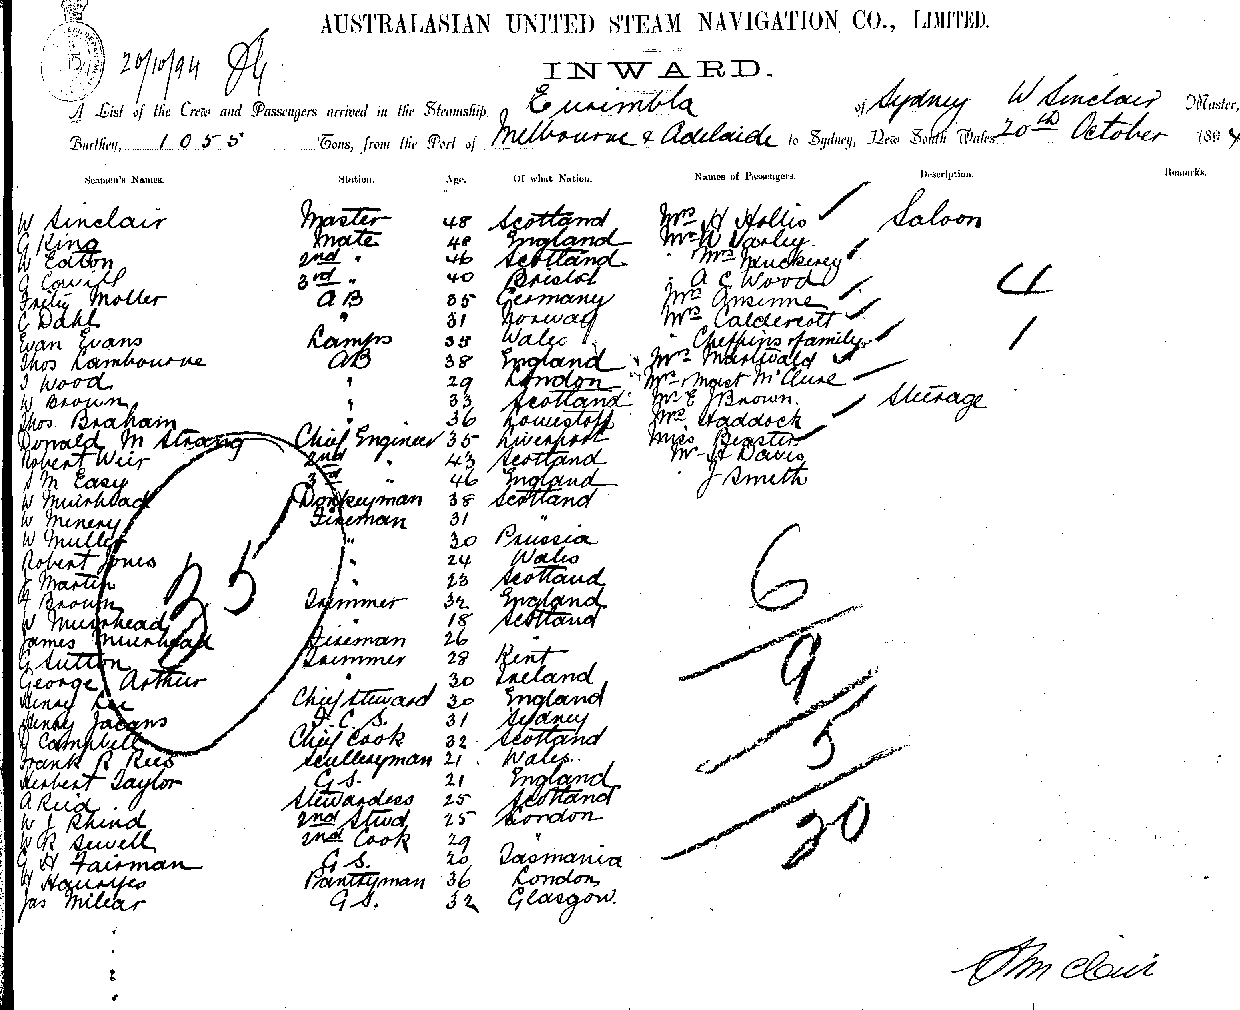 AUSTRALASIAN UNITED STEAM NAVIGATION CO., LIMITED.
20/10/94
INWARD.
A List of the Crew and Passengers arrived in the Steamship, Eurimbla of Sydney W Sinclair Master,
Burthen, 1055 Tons, from the Port of Melbourne & Adelaide to Sydney, New South Wales, 20th October 1894
Seamen's Names. Station. Age. Of what Nation. Names of Passengers. Description. Remarks.
W Sinclair Master 48 Scotland Mrs H Hollis Saloon
G King Mate 48 England Mr W Varley
W Eaton 2nd " 46 Scotland Mrs
G 3rd " 40 Bristol A E Wood 4
Moller AB 35 Germany Mrs
C Dahl " 31 Norway Mrs Caldercott
Evan Evans Lamps 35 Wales & family 1
Thos Lambourne AB 38 England Mrs
J Wood " 29 London Mrs & Mast McClure
W Brown " 33 Scotland Mr E J Brown Steerage
Thos. Braham " 36 Lowestoft Mrs Haddock
Donald M Strang Chief Engineer 35 Liverpool Miss
Robert Weir 2nd " 43 Scotland Mr H Davis
J M Easy 3rd " 46 England J Smith
W Muirhead Donkeyman 38 Scotland
W Minery Fireman 31 "
W Muller " 30 Prussia
Robert Jones " 24 Wales 6
J Martin " 23 Scotland
G Brown Trimmer 32 England
W Muirhead " 18 Scotland
James Muirhead Fireman 26 "
G Sutton Trimmer 28 Kent 9
George Arthur " 30 Ireland
Henry Lee Chief Steward 30 England
Henry Jacans F.C.S. 31 Sydney 5
J Campbell Chief Cook 32 Scotland
Frank R Rees Sculleryman 21 Wales
Herbert Taylor G S. 21 England
A Reid Stewardess 25 Scotland
W J Rhind 2nd Stwd 25 London 20
W R Sewell 2nd Cook 29 "
G H Fairman G S. 20 Tasmania
W Pantryman 36 London
Jas Millar G S. 32 Glasgow.
35
W Sinclair